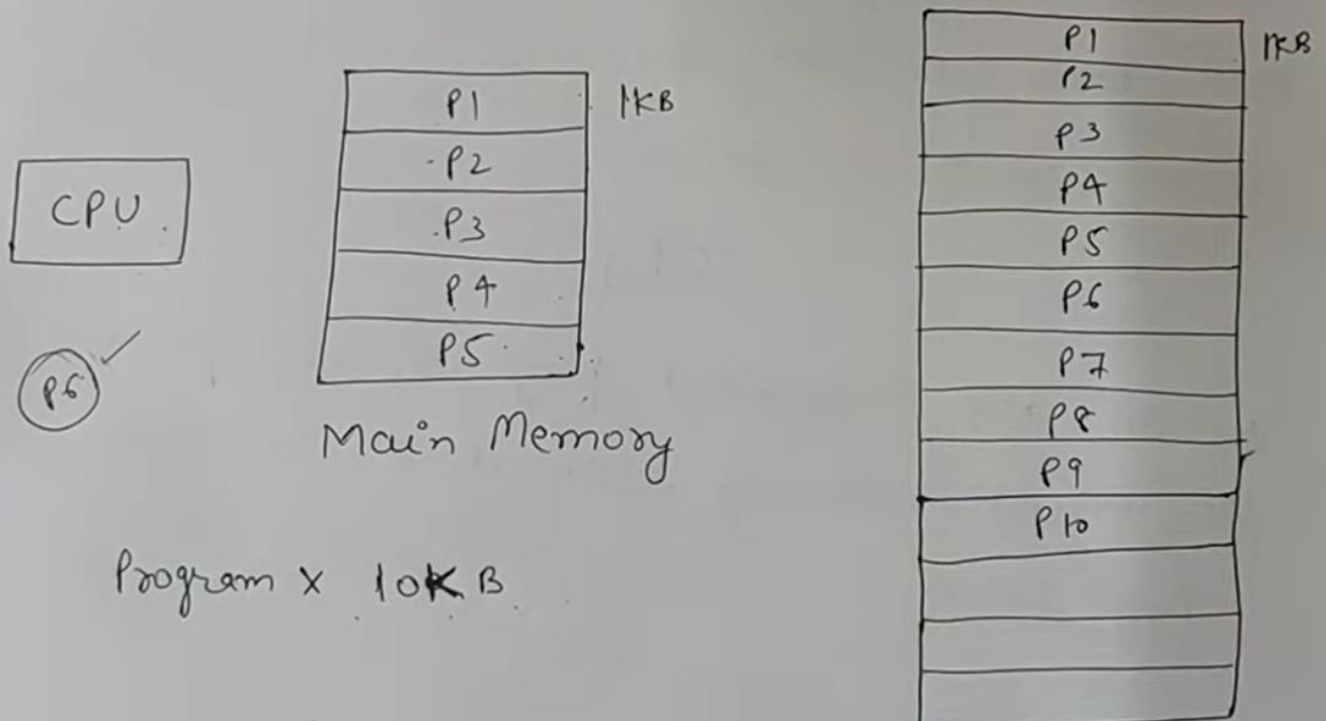 CPU
P6
P1
P2
P3
P4
P5
1KB
Main Memory
Program X 10KB
P1
P2
P3
P4
P5
P6
P7
P8
P9
P10
1KB